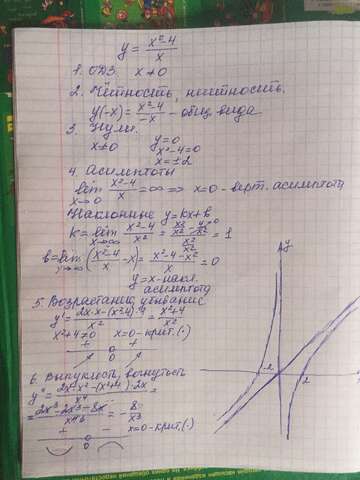 y = x²-4/x
1. ОДЗ. x ≠ 0
2. Чётность, нечётность.
y(-x) = x²-4/-x - общ. вида
3. Нули.
x≠0 y=0
x²-4=0
x=±2
4. Асимптоты
lim x→0 x²-4/x = ∞ => x=0 - верт. асимптота
Наклонные y=kx+b
k = lim x→∞ x²-4/x² = 1
b = lim x→∞ (x²-4/x - x) = x²-4-x²/x = 0
y=x-накл.
асимптота
5. Возрастание, убывание
y' = 2x·x-(x²-4)/x² = x²+4/x²
x²+4≠0 x=0-крит.(·)
+ 0 +
6. Выпуклость, вогнутость
y'' = 2x·x²-(x²+4)·2x/x⁴ =
= 2x³-2x³-8x/x⁴ = -8/x³
+ - x=0-крит.(·)
0
y
-2 2